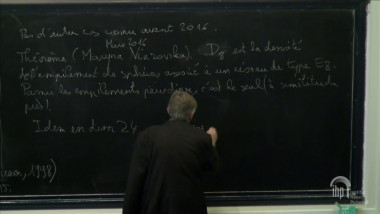 Pas d'autre cas connu avant 2016.
Mars 2016
Théorème (Maryna Viazovska). D8 est la densité
de l'empilement de sphères associé à un réseau de type E8.
Parmi les empilements périodiques, c'est le seul (à similitude
près)
Idem en dim 24
1998)
ihp